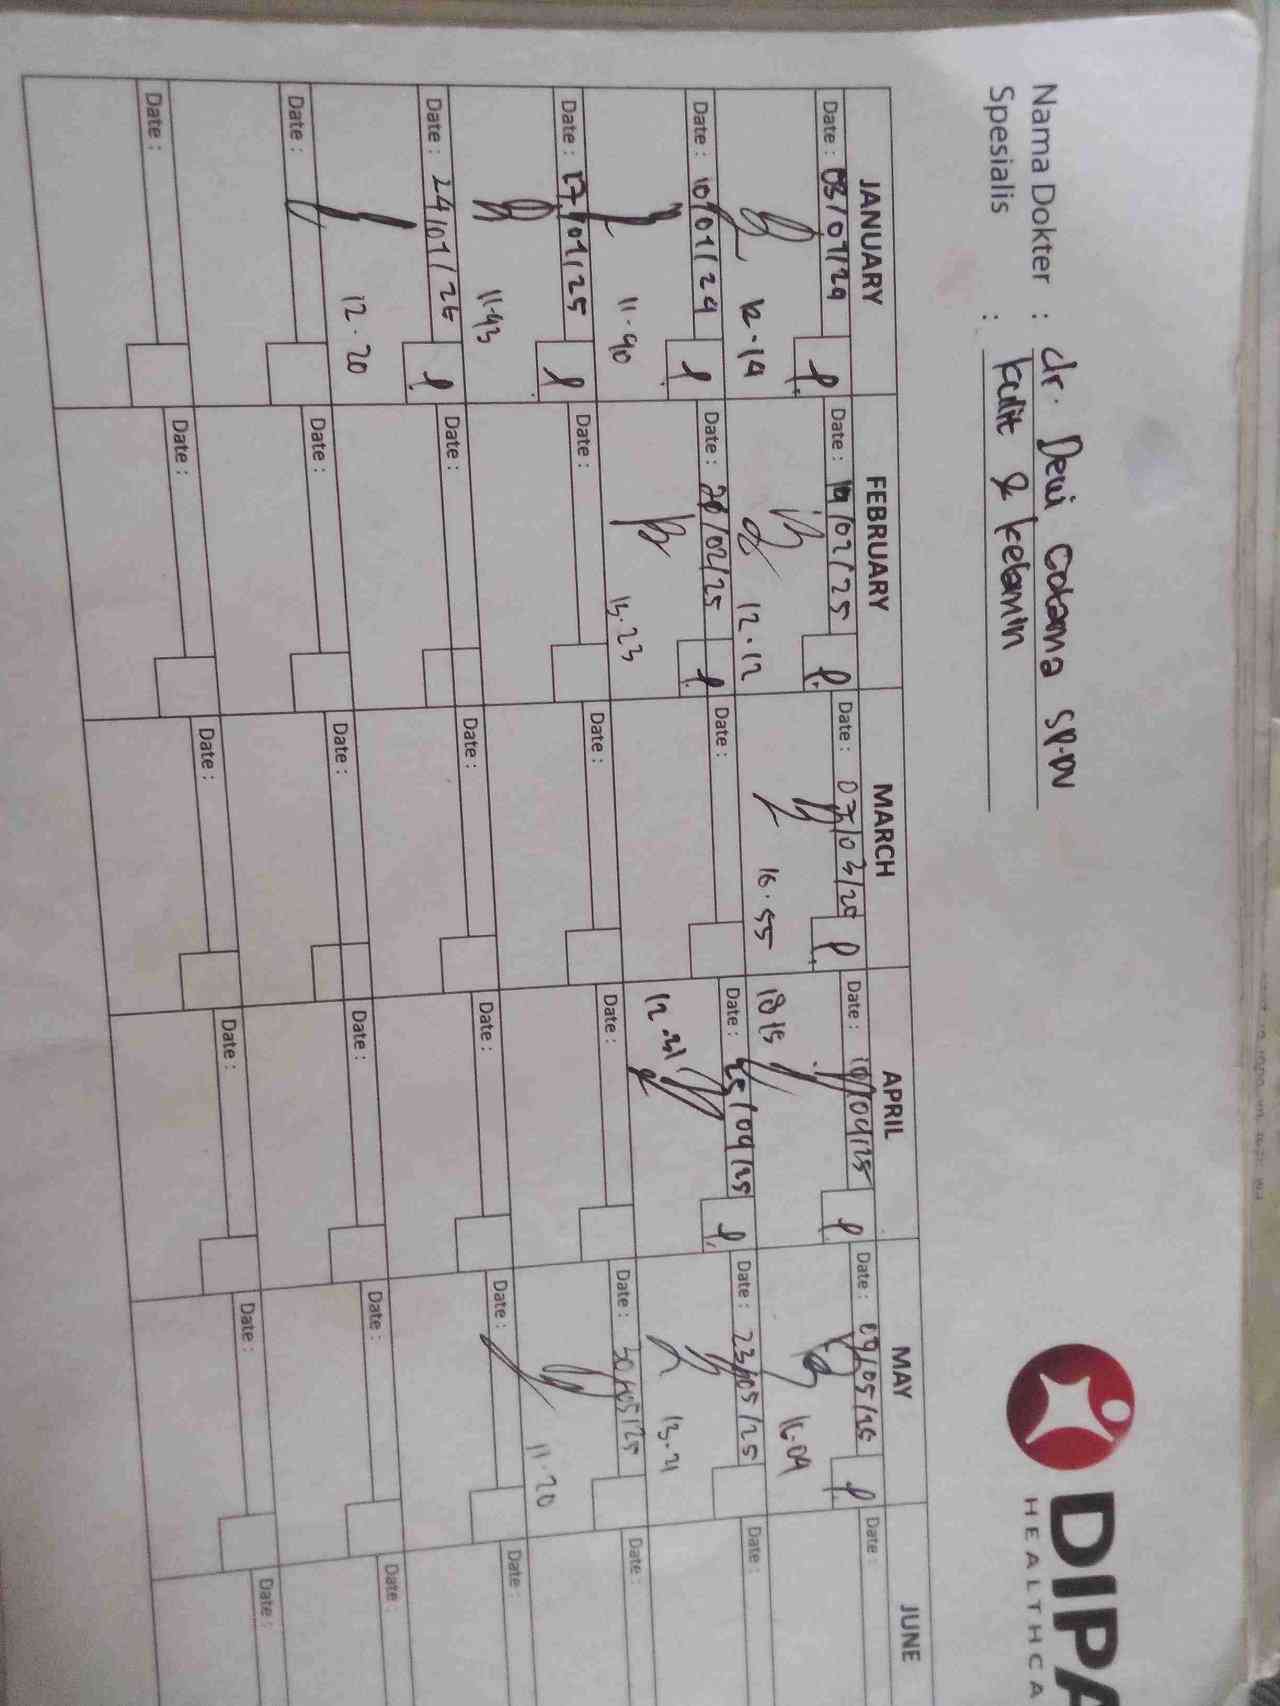 DIPA
HEALTHCA
Nama Dokter : dr. Dewi Cotama SP.DV
Spesialis : kulit & kelamin
JANUARY FEBRUARY MARCH APRIL MAY JUNE
Date : 03/01/24 Date : /02/25 Date : 07/03/25 Date : 10/04/25 Date : 09/05/25 Date :
12.14 12.12 16.55 18 15 16.09
Date : 10/01/24 Date : /02/25 Date : Date : 25/04/25 Date : 23/05/25 Date :
11.40 13.23 12.31 13.21
Date : 17/01/25 Date : Date : Date : Date : 30/05/25 Date :
11.43 11.20
Date : 24/01/25 Date : Date : Date : Date : Date :
12.20
Date : Date : Date : Date : Date : Date :
Date : Date : Date : Date : Date : Date :